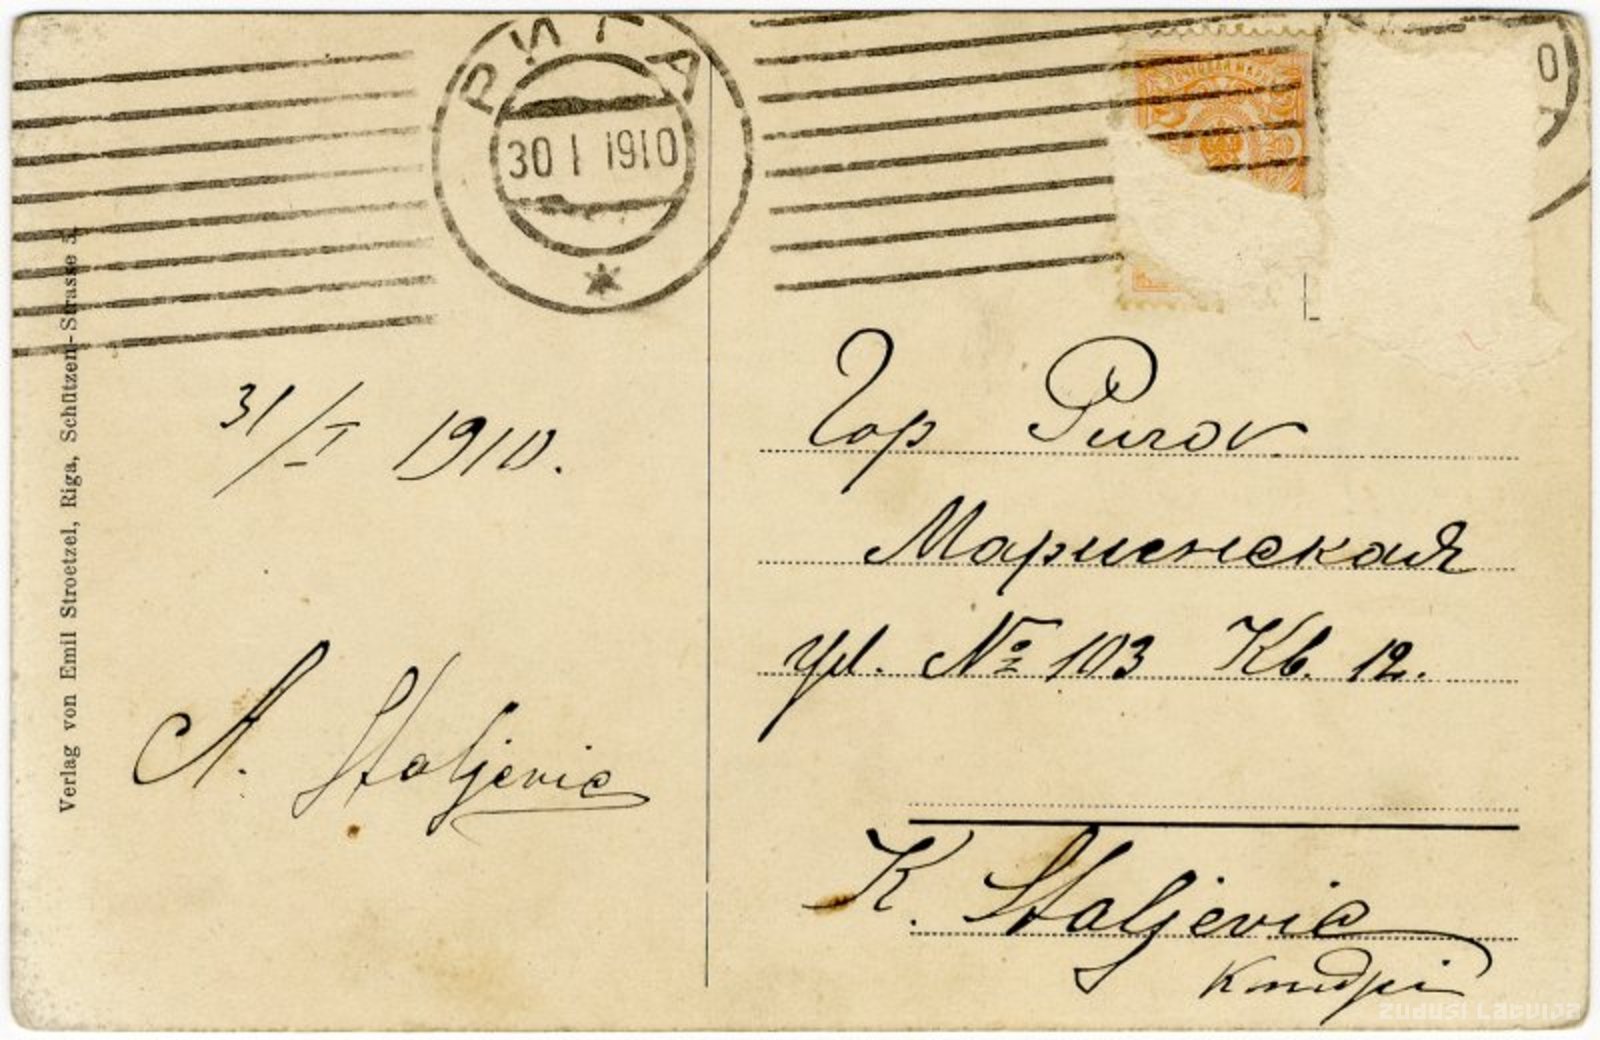 РИГА
30 1 1910
Verlag von Emil Stroetzel, Riga, Schützen-Strasse 3.
31/I 1910.
A. Staljevic
Гор Ригов
Мариенская
ул. № 103 Кв. 12.
K. Staljevic
zudusi Latvija